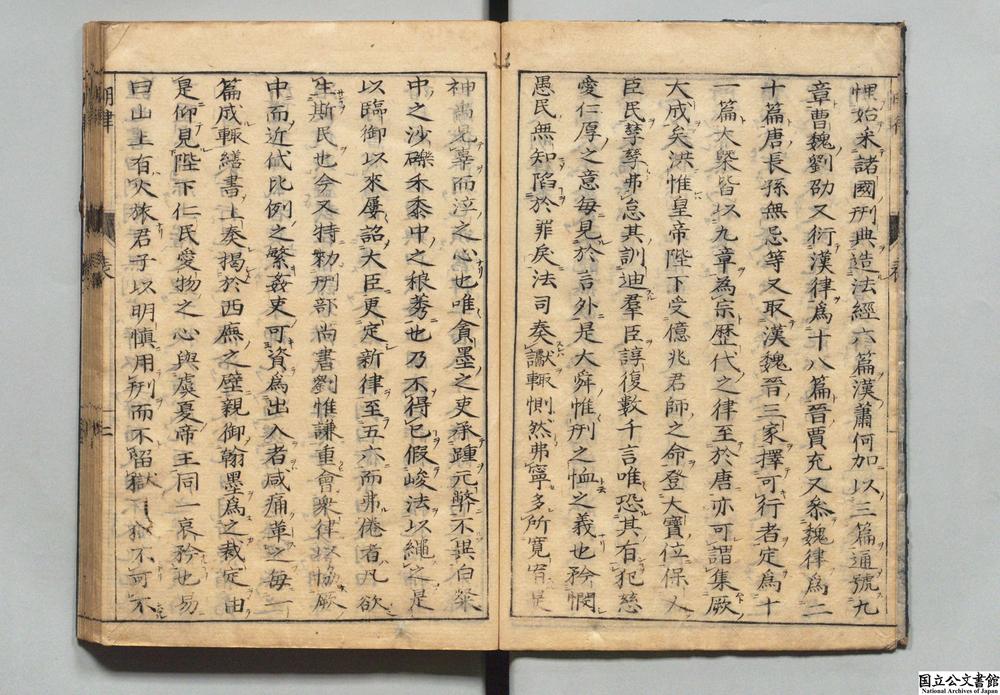 悝始釆諸國刑典造法經六篇漢蕭何加以三篇通號九
章曹魏劉劭又衍漢律爲十八篇晉賈充又叅魏律爲二
十篇唐長孫無忌等又取漢魏晉三家擇可行者定爲十
一篇大槩皆以九章為宗歷代之律至於唐亦可謂集厥
大成矣洪惟皇帝陛下受億兆君師之命登大寶位保乂
臣民孳孳弗怠其訓迪羣臣諄復數千言唯恐其有犯慈
愛仁厚之意每見於言外是大舜惟刑之恤之義也矜憫
愚民無知陷於罪戾法司奏讞輒惻然弗寧多所寬宥是
神禹見辜而泣之心也唯貪墨之吏承踵元幣不異白粲
中之沙礫禾黍中之稂莠也乃不得已假峻法以繩之是
以臨御以來屢詔大臣更定新律至五六而弗倦者凡欲
生斯民也今又特勑刑部尚書劉惟謙重會衆律以協厥
中而近代比例之繁姦吏可資為出入者咸痛革之每一
篇成輒繕書上奏揭於西廡之壁親御翰墨爲之裁定由
是仰見陛下仁民愛物之心與虞夏帝王同一哀矜也易
曰山上有火旅君子以明慎用刑而不留獄 獄不可不
明律
表
三
国立公文書館
National Archives of Japan